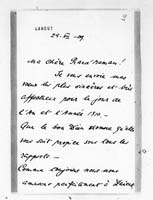 9
LABOUT
29-XII-09
Ma chère Grand'maman!
Je vous envoie mes
vœux les plus sincères et très
affectueux pour le jour de
l'An et l'Année 1910.-
Que le bon Dieu donne qu'elle
vous soit propice sous tous les
rapports.-
Comme toujours nous nous
amusons parfaitement à